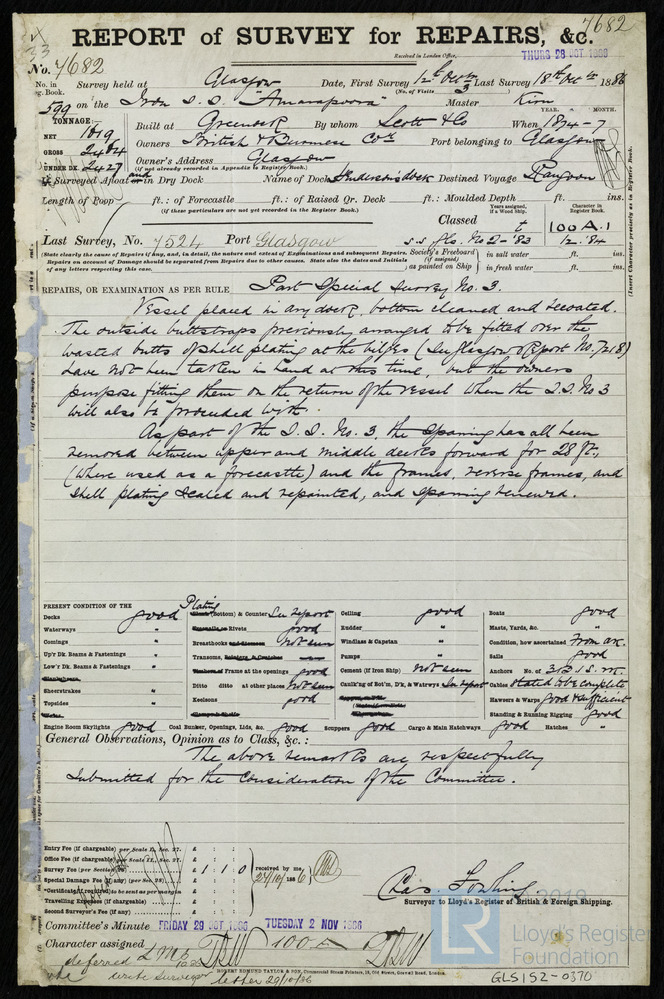 7682
REPORT of SURVEY for REPAIRS, &c.
Received in London Office,
THURS 28 OCT 1886
No. 7682
No. in Survey held at Glasgow Date, First Survey 12th Octr Last Survey 18th Octr 1886
g. Book. (No. of Visits 3)
599 on the Iron S.S. "Amarapoora" Master
TONNAGE:
YEAR. MONTH.
NET 1619 Built at Greenock By whom Scott & Co When 1874-7
GROSS 2484 Owners British & Burmese Coy Port belonging to Glasgow
UNDER DK. 2427 Owner's Address Glasgow
(if not already recorded in Appendix to Register Book.)
Surveyed Afloat and in Dry Dock Name of Dock Destined Voyage Rangoon
Length of Poop ft.: of Forecastle ft.: of Raised Qr. Deck ft.: Moulded Depth ft. ins.
(If these particulars are not yet recorded in the Register Book.)
Years assigned, if a Wood Ship.
Character in Register Book.
Classed 100 A.1
Last Survey, No. 7524 Port Glasgow s.s. Gls. No 2-'83 12.84
(State clearly the cause of Repairs if any, and, in detail, the nature and extent of Examinations and subsequent Repairs.
Repairs on account of Damage should be separated from Repairs due to other causes. State also the dates and Initials
of any letters respecting this case.
Society's Freeboard (if assigned) as painted on Ship
in salt water ft. ins.
in fresh water ft. ins.
(Insert Character precisely as in Register Book.
REPAIRS, OR EXAMINATION AS PER RULE Part Special Survey No. 3.
Vessel placed in dry dock, bottom cleaned and recoated.
The outside buttstraps previously arranged to be fitted over the
wasted butts of shell plating at the bilges (See Glasgow Report No. 7218)
have not been taken in hand at this time, but the owners
purpose fitting them on the return of the vessel when the S.S. No 3
will also be proceeded with.
As part of the S.S. No. 3, the Sparring has all been
removed between upper and middle decks forward for 28 ft.,
(where used as a forecastle) and the frames, reverse frames, and
shell plating scaled and repainted, and Sparring renewed.
PRESENT CONDITION OF THE
Decks good
Waterways "
Comings "
Up'r Dk. Beams & Fastenings "
Low'r Dk. Beams & Fastenings "
Sheerstrakes "
Topsides "
Engine Room Skylights good
Plating (Bottom) & Counter See report
Rivets good
Breasthooks not seen
Transoms,
Frame at the openings good
Ditto ditto at other places not seen
Keelsons good
Coal Bunker, Openings, Lids, &c. good
Ceiling good
Rudder "
Windlass & Capstan "
Pumps "
Cement (if Iron Ship) not seen
Caulk'g of Bot'm, D'k, & Watrwys See report
Scuppers good Cargo & Main Hatchways good
Boats good
Masts, Yards, &c. "
Condition, how ascertained From dk.
Sails good
Anchors No. of 3.B 1 S.
Cables stated to be complete
Hawsers & Warps good & sufficient
Standing & Running Rigging good
Hatches "
General Observations, Opinion as to Class, &c.:
The above remarks are respectfully
submitted for the consideration of the Committee.
Entry Fee (if chargeable) per Scale I., Sec. 27. £ : :
Office Fee (if chargeable) per Scale II., Sec. 27. £ : :
Survey Fee (per Section 28) £ 1 : 1 : 0 received by me
Special Damage Fee (if any) (per Sec. 28) £ : : 27/10/1886
*Certificate (if required) to be sent as per margin £ : :
Travelling Expenses (if chargeable) £ : :
Second Surveyor's Fee (if any) £ : :
Surveyor to Lloyd's Register of British & Foreign Shipping.
Committee's Minute FRIDAY 29 OCT 1886 TUESDAY 2 NOV 1886
Character assigned 100
deferred
write Surveyor
letter 29/10/86
ROBERT EDMUND TAYLOR & SON, Commercial Steam Printers, 19, Old Street, Goswell Road, London.
LR
Lloyd's Register
Foundation
GLS152-0370